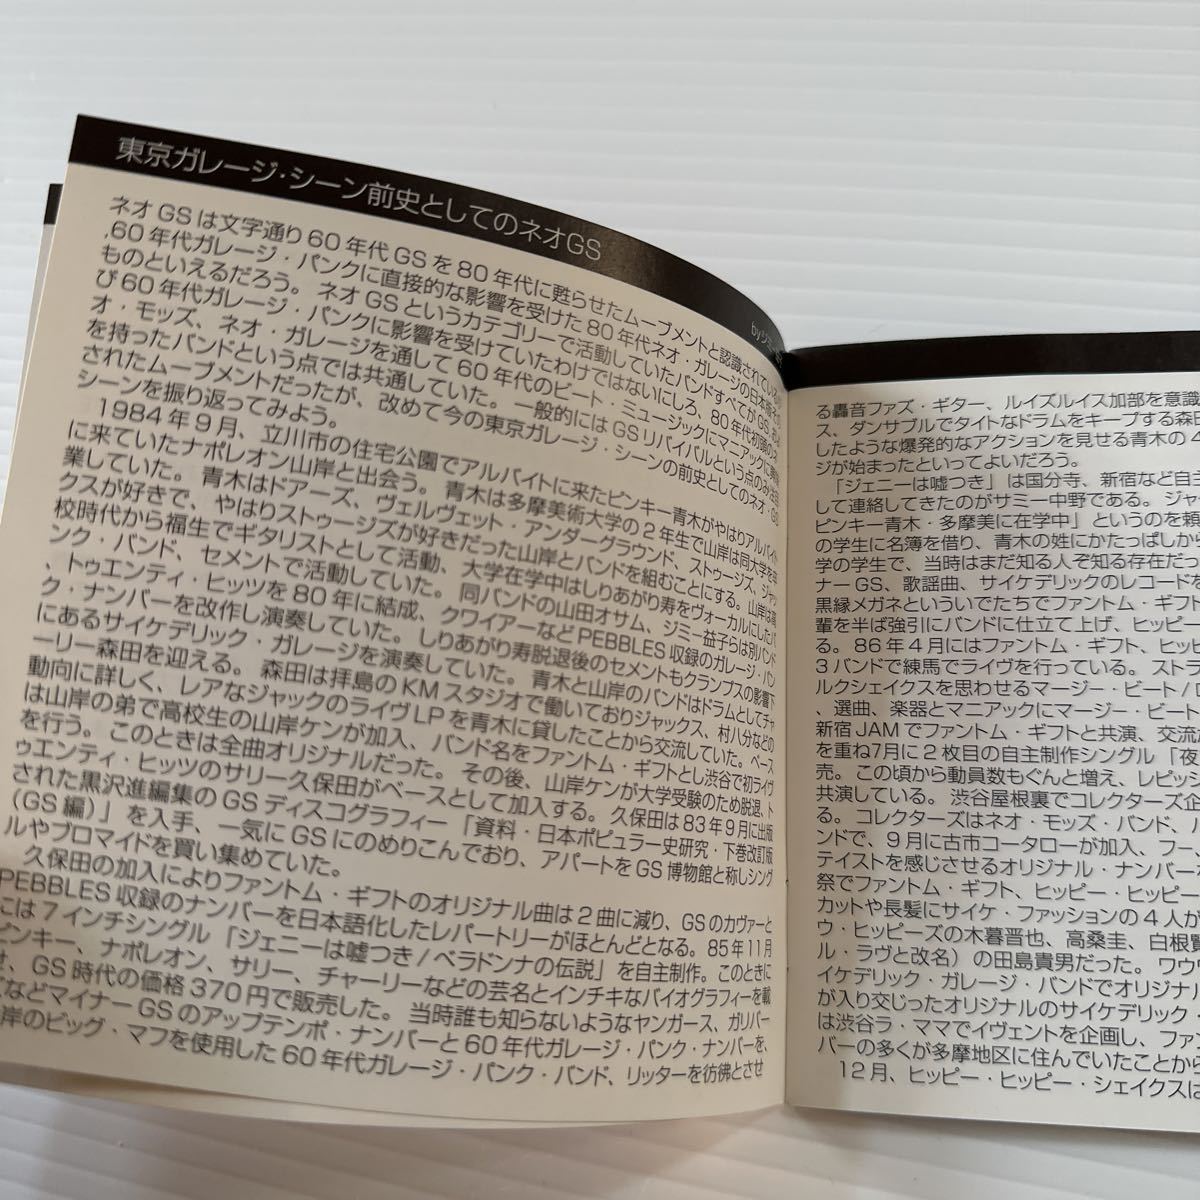 東京ガレージ・シーン前史としてのネオGS
byジミー
ネオGSは文字通り60年代GSを80年代に甦らせたムーブメントと認識されている
,60年代ガレージ・パンクに直接的な影響を受けた80年代ネオ・ガレージの日本版その
ものといえるだろう。ネオGSというカテゴリーで活動していたバンドすべてがGS、
び60年代ガレージ・パンクに影響を受けていたわけではないにしろ、80年代初頭のネ
オ・モッズ、ネオ・ガレージを通して60年代のビート・ミュージックにマニアックに
を持ったバンドという点では共通していた。一般的にはGSリバイバルという点のみ
されたムーブメントだったが、改めて今の東京ガレージ・シーンの前史としてのネオ・GS
シーンを振り返ってみよう。
1984年9月、立川市の住宅公園でアルバイトに来たピンキー青木がやはりアルバイト
に来ていたナポレオン山岸と出会う。青木は多摩美術大学の2年生で山岸は同大学を卒
業していた。青木はドアーズ、ヴェルヴェット・アンダーグラウンド、ストゥージズ、ジャッ
クスが好きで、やはりストゥージズが好きだった山岸とバンドを組むことにする。山岸は高
校時代から福生でギタリストとして活動、大学在学中はしりあがり寿をヴォーカルにしたパ
ンク・バンド、セメントで活動していた。同バンドの山田オサム、ジミー益子らは別バンド
、トゥエンティ・ヒッツを80年に結成、クワイアーなどPEBBLES収録のガレージ・パン
ク・ナンバーを改作し演奏していた。しりあがり寿脱退後のセメントもクランプスの影響下
にあるサイケデリック・ガレージを演奏していた。青木と山岸のバンドはドラムとしてチャ
ーリー森田を迎える。森田は拝島のKMスタジオで働いておりジャックス、村八分などの
動向に詳しく、レアなジャックのライヴLPを青木に貸したことから交流していた。ベース
は山岸の弟で高校生の山岸ケンが加入、バンド名をファントム・ギフトとし渋谷で初ライヴ
を行う。このときは全曲オリジナルだった。その後、山岸ケンが大学受験のため脱退、ト
ゥエンティ・ヒッツのサリー久保田がベースとして加入する。久保田は83年9月に出版
された黒沢進編集のGSディスコグラフィー「資料・日本ポピュラー史研究・下巻改訂版
(GS編)」を入手、一気にGSにのめりこんでおり、アパートをGS博物館と称しシング
ルやブロマイドを買い集めていた。
久保田の加入によりファントム・ギフトのオリジナル曲は2曲に減り、GSのカヴァーと
PEBBLES収録のナンバーを日本語化したレパートリーがほとんどとなる。85年11月
には7インチシングル「ジェニーは嘘つき/ベラドンナの伝説」を自主制作。このときに
ピンキー、ナポレオン、サリー、チャーリーなどの芸名とインチキなバイオグラフィーを載
せ、GS時代の価格370円で販売した。当時誰も知らないようなヤンガース、ガリバー
などマイナーGSのアップテンポ・ナンバーと60年代ガレージ・パンク・ナンバーを、
岸のビッグ・マフを使用した60年代ガレージ・パンク・バンド、リッターを彷彿とさせ
る轟音ファズ・ギター、ルイズルイス加部を意識
ス、ダンサブルでタイトなドラムをキープする森田
したような爆発的なアクションを見せる青木の4
ジが始まったといってよいだろう。
「ジェニーは嘘つき」は国分寺、新宿など自主
して連絡してきたのがサミー中野である。ジャ
ピンキー青木・多摩美に在学中」というのを頼
の学生に名簿を借り、青木の姓にかたっぱしから
学の学生で、当時はまだ知る人ぞ知る存在だっ
ナーGS、歌謡曲、サイケデリックのレコードを
黒縁メガネといういでたちでファントム・ギフト
輩を半ば強引にバンドに仕立て上げ、ヒッピー
る。86年4月にはファントム・ギフト、ヒッピ
3バンドで練馬でライヴを行っている。ストラ
ルクシェイクスを思わせるマージー・ビート/
、選曲、楽器とマニアックにマージー・ビート
新宿JAMでファントム・ギフトと共演、交流
を重ね7月に2枚目の自主制作シングル「夜
売。この頃から動員数もぐんと増え、レピッシ
共演している。渋谷屋根裏でコレクターズ企
る。コレクターズはネオ・モッズ・バンド、
ンドで、9月に古市コータローが加入、フー、
テイストを感じさせるオリジナル・ナンバーを
祭でファントム・ギフト、ヒッピー・ヒッピー
カットや長髪にサイケ・ファッションの4人が
ウ・ヒッピーズの木暮晋也、高桑圭、白根賢
ル・ラヴと改名)の田島貴男だった。ワウワ
イケデリック・ガレージ・バンドでオリジナル
が入り交じったオリジナルのサイケデリック・
は渋谷ラ・ママでイヴェントを企画し、ファン
バーの多くが多摩地区に住んでいたことから
12月、ヒッピー・ヒッピー・シェイクスは